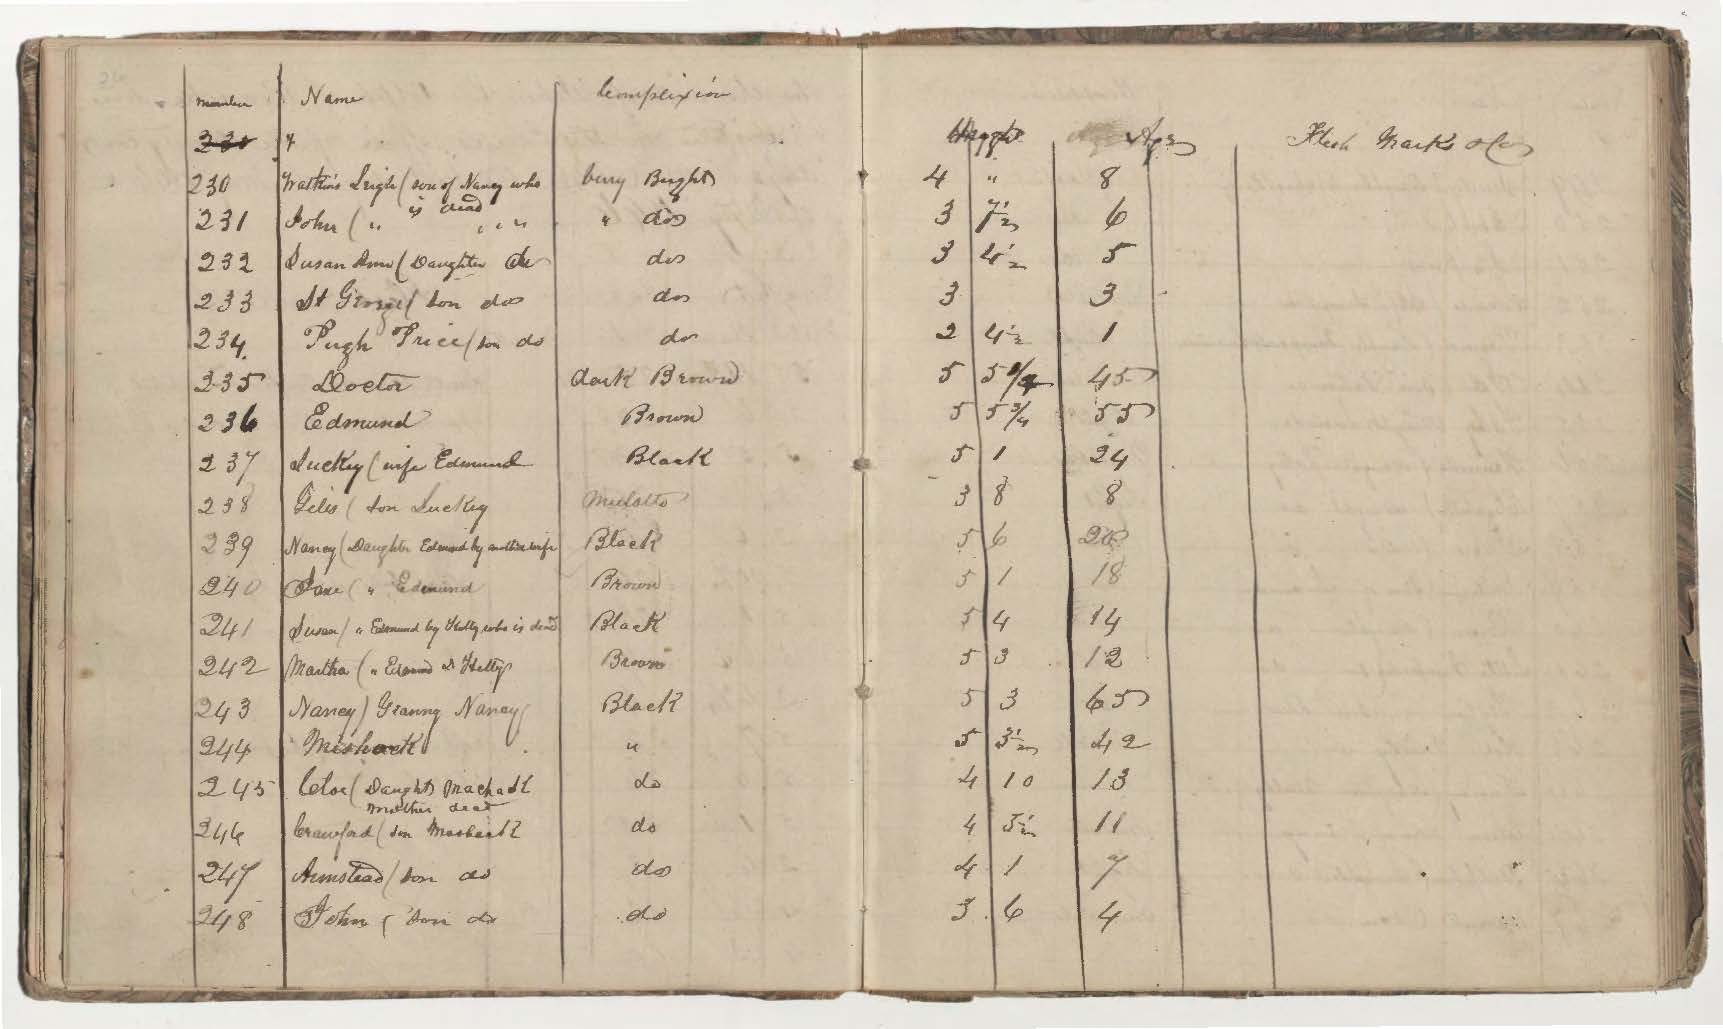 number Name Complexion Heyght Age Flesh Marks &c
230 "
230 Watkins Leigh (son of Nancy who is dead very Bright 4 " 8
231 John ( " " " " " do 3 7½ 6
232 Susan Ann (Daughter do do 3 4½ 5
233 St George (son do do 3 3
234 Pugh Price (son do do 2 4½ 1
235 Doctor dark Brown 5 5 1/4 45
236 Edmund Brown 5 5 3/4 55
237 Luckey (wife Edmund Black 5 1 24
238 Giles (son Luckey Mulatto 3 8 8
239 Nancy (Daughter Edmund by another wife Black 5 6 20
240 Jane ( " Edmund Brown 5 1 18
241 Susan ( " Edmund by Hetty who is dead Black 5 4 14
242 Martha ( " Edmund & Hetty Brown 5 3 12
243 Nancy) Granny Nancy Black 5 3 65
244 Mishack " 5 3½ 42
245 Cloe (Daught Machack mother dead do 4 10 13
246 Crawford (son Meshack do 4 5½ 11
247 Armstead (son do do 4 1 7
248 John (son do do 3 6 4